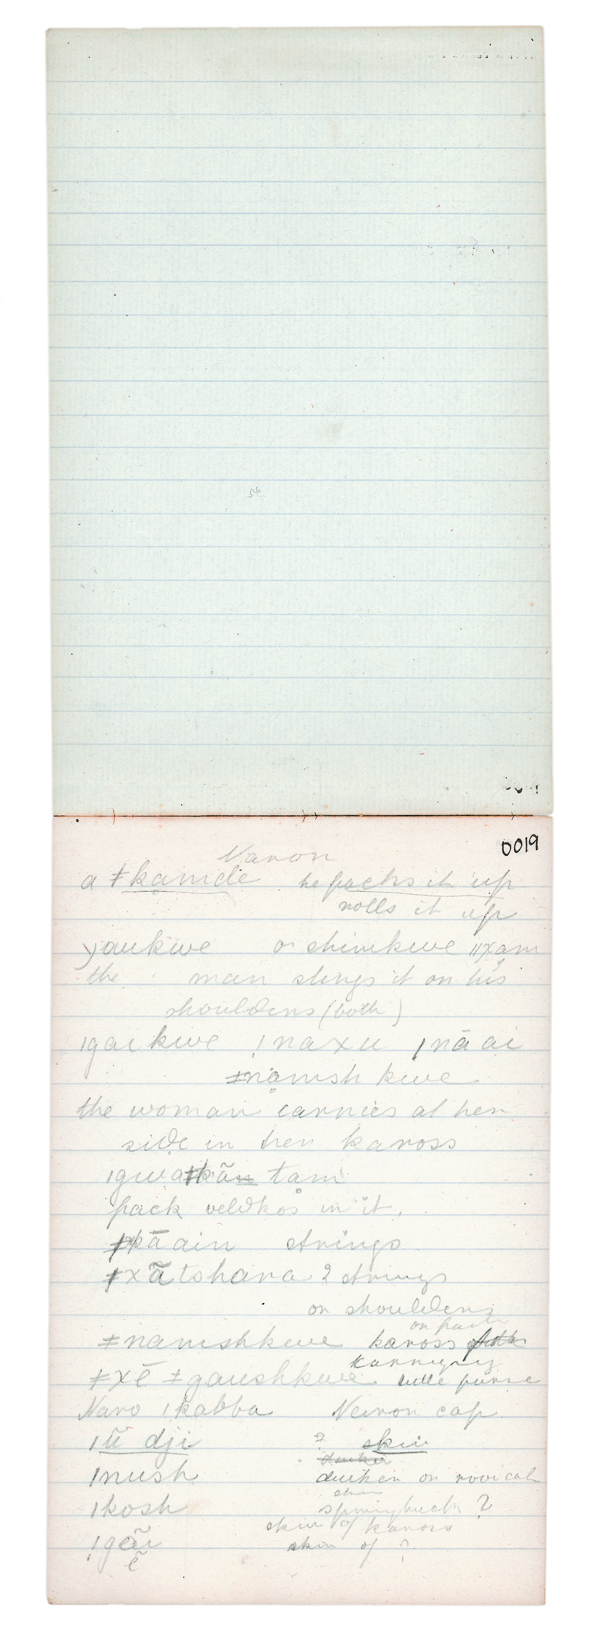 0019
Naron
a ǂkamde he packs it up
rolls it up
yaukwe or shinkwe ǁxam
the man slings it on his
shoulders (both)
ǀgai kwe ǃnaxu ǀnā ai
ǂnamsh kwe
the woman carries at her
side in her kaross
tam
pack veldkos in it.
ain strings
ǂxãtshara 2 strings
on shoulders
on back
ǂnamshkwe kaross
ǂxē ǂgaushkwe little purse
Naro ǀkabba Neron cap
ǀũ dji ? skin
ǀnush duiker or rooicat
ǀkosh springbuck ?
skin of kaross
ǃgãi skin of ?
ē